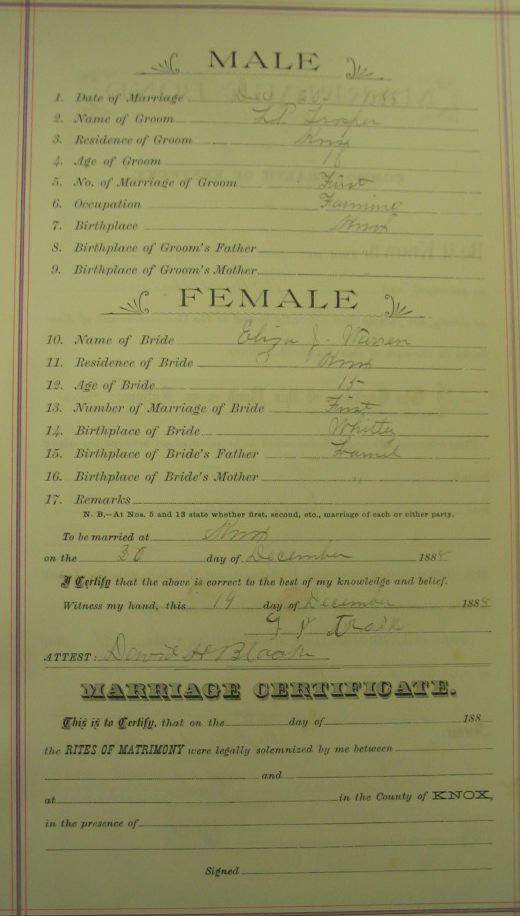 MALE
1. Date of Marriage
2. Name of Groom L P
3. Residence of Groom Knox
4. Age of Groom
5. No. of Marriage of Groom First
6. Occupation Farming
7. Birthplace Knox
8. Birthplace of Groom's Father
9. Birthplace of Groom's Mother
FEMALE
10. Name of Bride Eliza J. Warren
11. Residence of Bride Knox
12. Age of Bride 15
13. Number of Marriage of Bride First
14. Birthplace of Bride Whitley
15. Birthplace of Bride's Father
16. Birthplace of Bride's Mother "
17. Remarks
N. B.—At Nos. 5 and 13 state whether first, second, etc., marriage of each or either party.
To be married at Knox
on the 30 day of December 1888
I Certify that the above is correct to the best of my knowledge and belief.
Witness my hand, this 19 day of December 1888
ATTEST: David H Black
MARRIAGE CERTIFICATE.
This is to Certify, that on the day of 188
the RITES OF MATRIMONY were legally solemnized by me between
and
at in the County of KNOX,
in the presence of
Signed